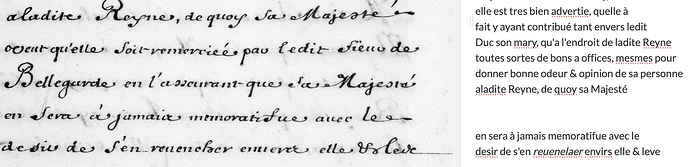 aladite Reyne, de quoy sa Majesté
veut qu'elle soit remerciée par ledit sieur de
Bellegarde en l'asseurant que sa Majesté
en sera à jamais memoratifue avec le
desir de s'en revencher envers elle & leve
elle est tres bien advertie, quelle à
fait y ayant contribué tant envers ledit
Duc son mary, qu'a l'endroit de ladite Reyne
toutes sortes de bons a offices, mesmes pour
donner bonne odeur & opinion de sa personne
aladite Reyne, de quoy sa Majesté
en sera à jamais memoratifue avec le
desir de s'en reuenelaer envirs elle & leve